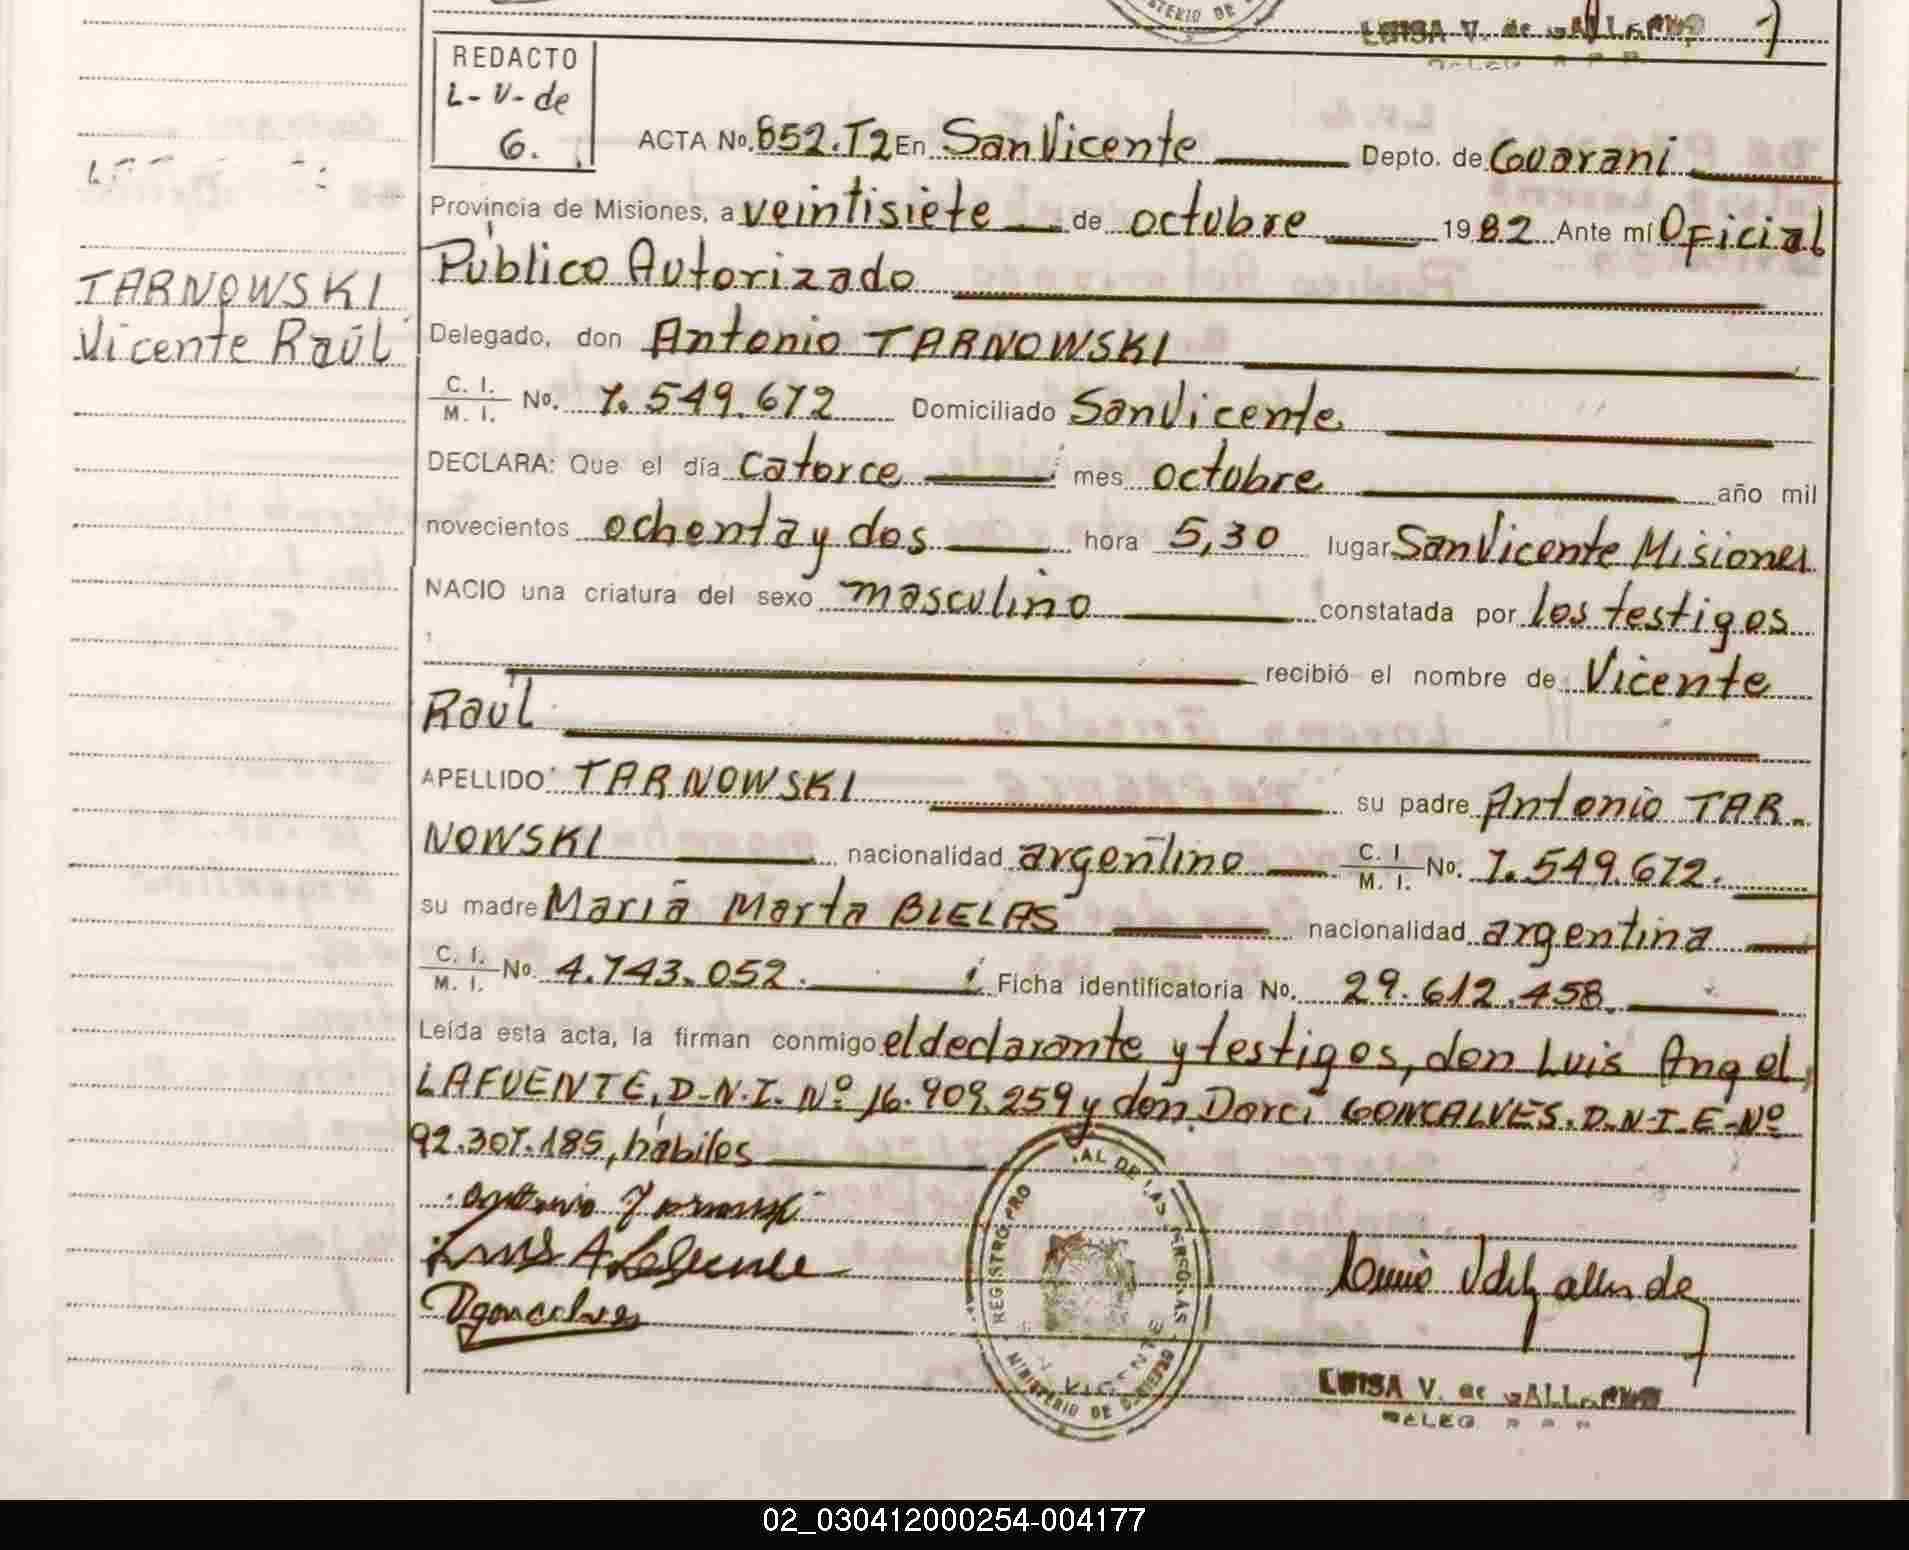 LUISA V. de GALLARDO
REDACTO
L-V-de
G.
ACTA No. 852.T2 En San Vicente Depto. de Guarani
Provincia de Misiones, a veintisiete de octubre 1982 Ante mí Oficial
Público Autorizado
TARNOWSKI
Vicente Raúl
Delegado, don Antonio TARNOWSKI
C. I. / M. I. No. 7.549.672 Domiciliado San Vicente
DECLARA: Que el día catorce mes octubre año mil
novecientos ochenta y dos hora 5,30 lugar San Vicente Misiones
NACIO una criatura del sexo masculino constatada por los testigos
recibió el nombre de Vicente
Raúl
APELLIDO TARNOWSKI su padre Antonio TAR-
NOWSKI nacionalidad argentino C. I. / M. I. No. 7.549.672.
su madre María Marta BIELAS nacionalidad argentina
C. I. / M. I. No. 4.743.052. Ficha identificatoria No. 29.612.458.
Leída esta acta, la firman conmigo el declarante y testigos, don Luis Angel
LAFUENTE, D-N-I. Nº 16.909.259 y don Darci GONCALVES. D-N-I-E-Nº
92.307.185, hábiles
REGISTRO PRO AL DE LAS PERSONAS
MINISTERIO DE GOBIERNO
VICENTE
LUISA V. de GALLARDO
DELEG
02_030412000254-004177